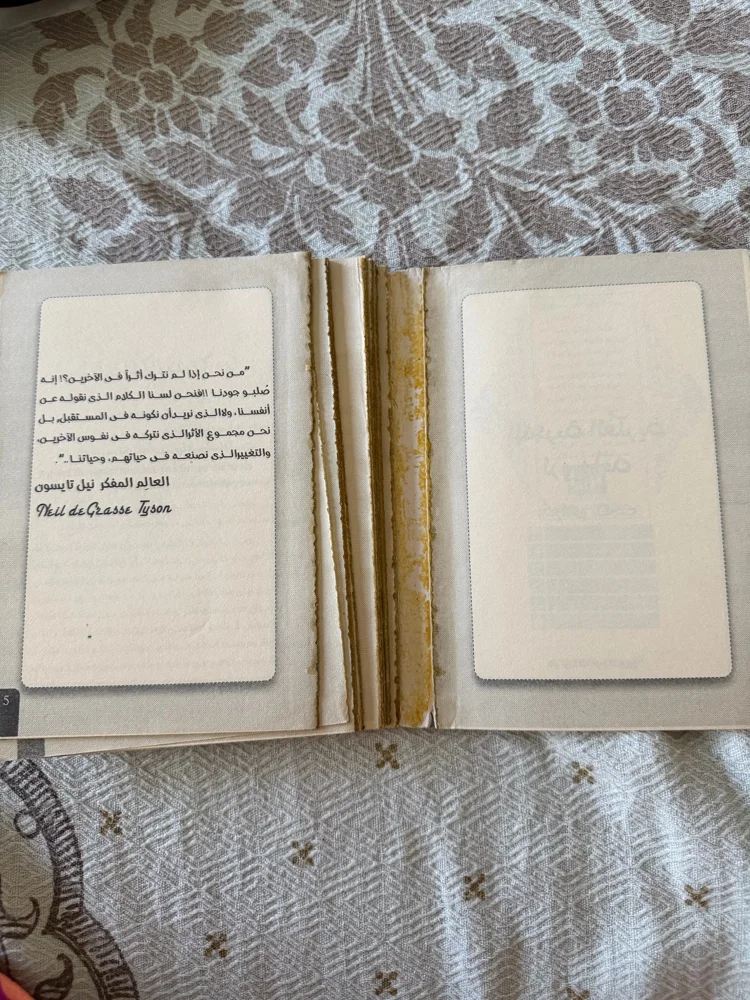 "من نحن إذا لم نترك أثراً فى الآخرين؟! إنه
صُلبو جودنا !!فنحن لسنا الكلام الذى نقوله عن
أنفسنا، ولاالذى نريدأن نكونه فى المستقبل, بل
نحن مجموع الأثرالذى نتركه فى نفوس الآخرين،
والتغييرالذى نصنعه فى حياتهم، وحياتنا..".
العالِم المفكر نيل تايسون
Neil deGrasse Tyson
5